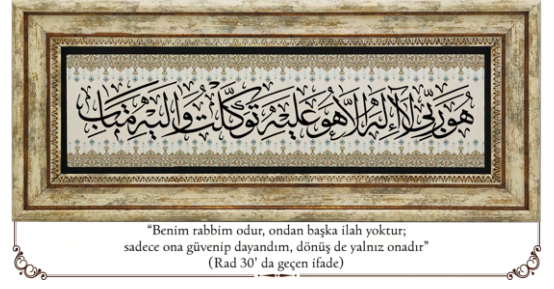 هُوَ رَبِّي لَا إِلَهَ إِلَّا هُوَ عَلَيْهِ تَوَكَّلْتُ وَإِلَيْهِ مَتَابِ
“Benim rabbim odur, ondan başka ilah yoktur;
sadece ona güvenip dayandım, dönüş de yalnız onadır”
(Rad 30’ da geçen ifade)